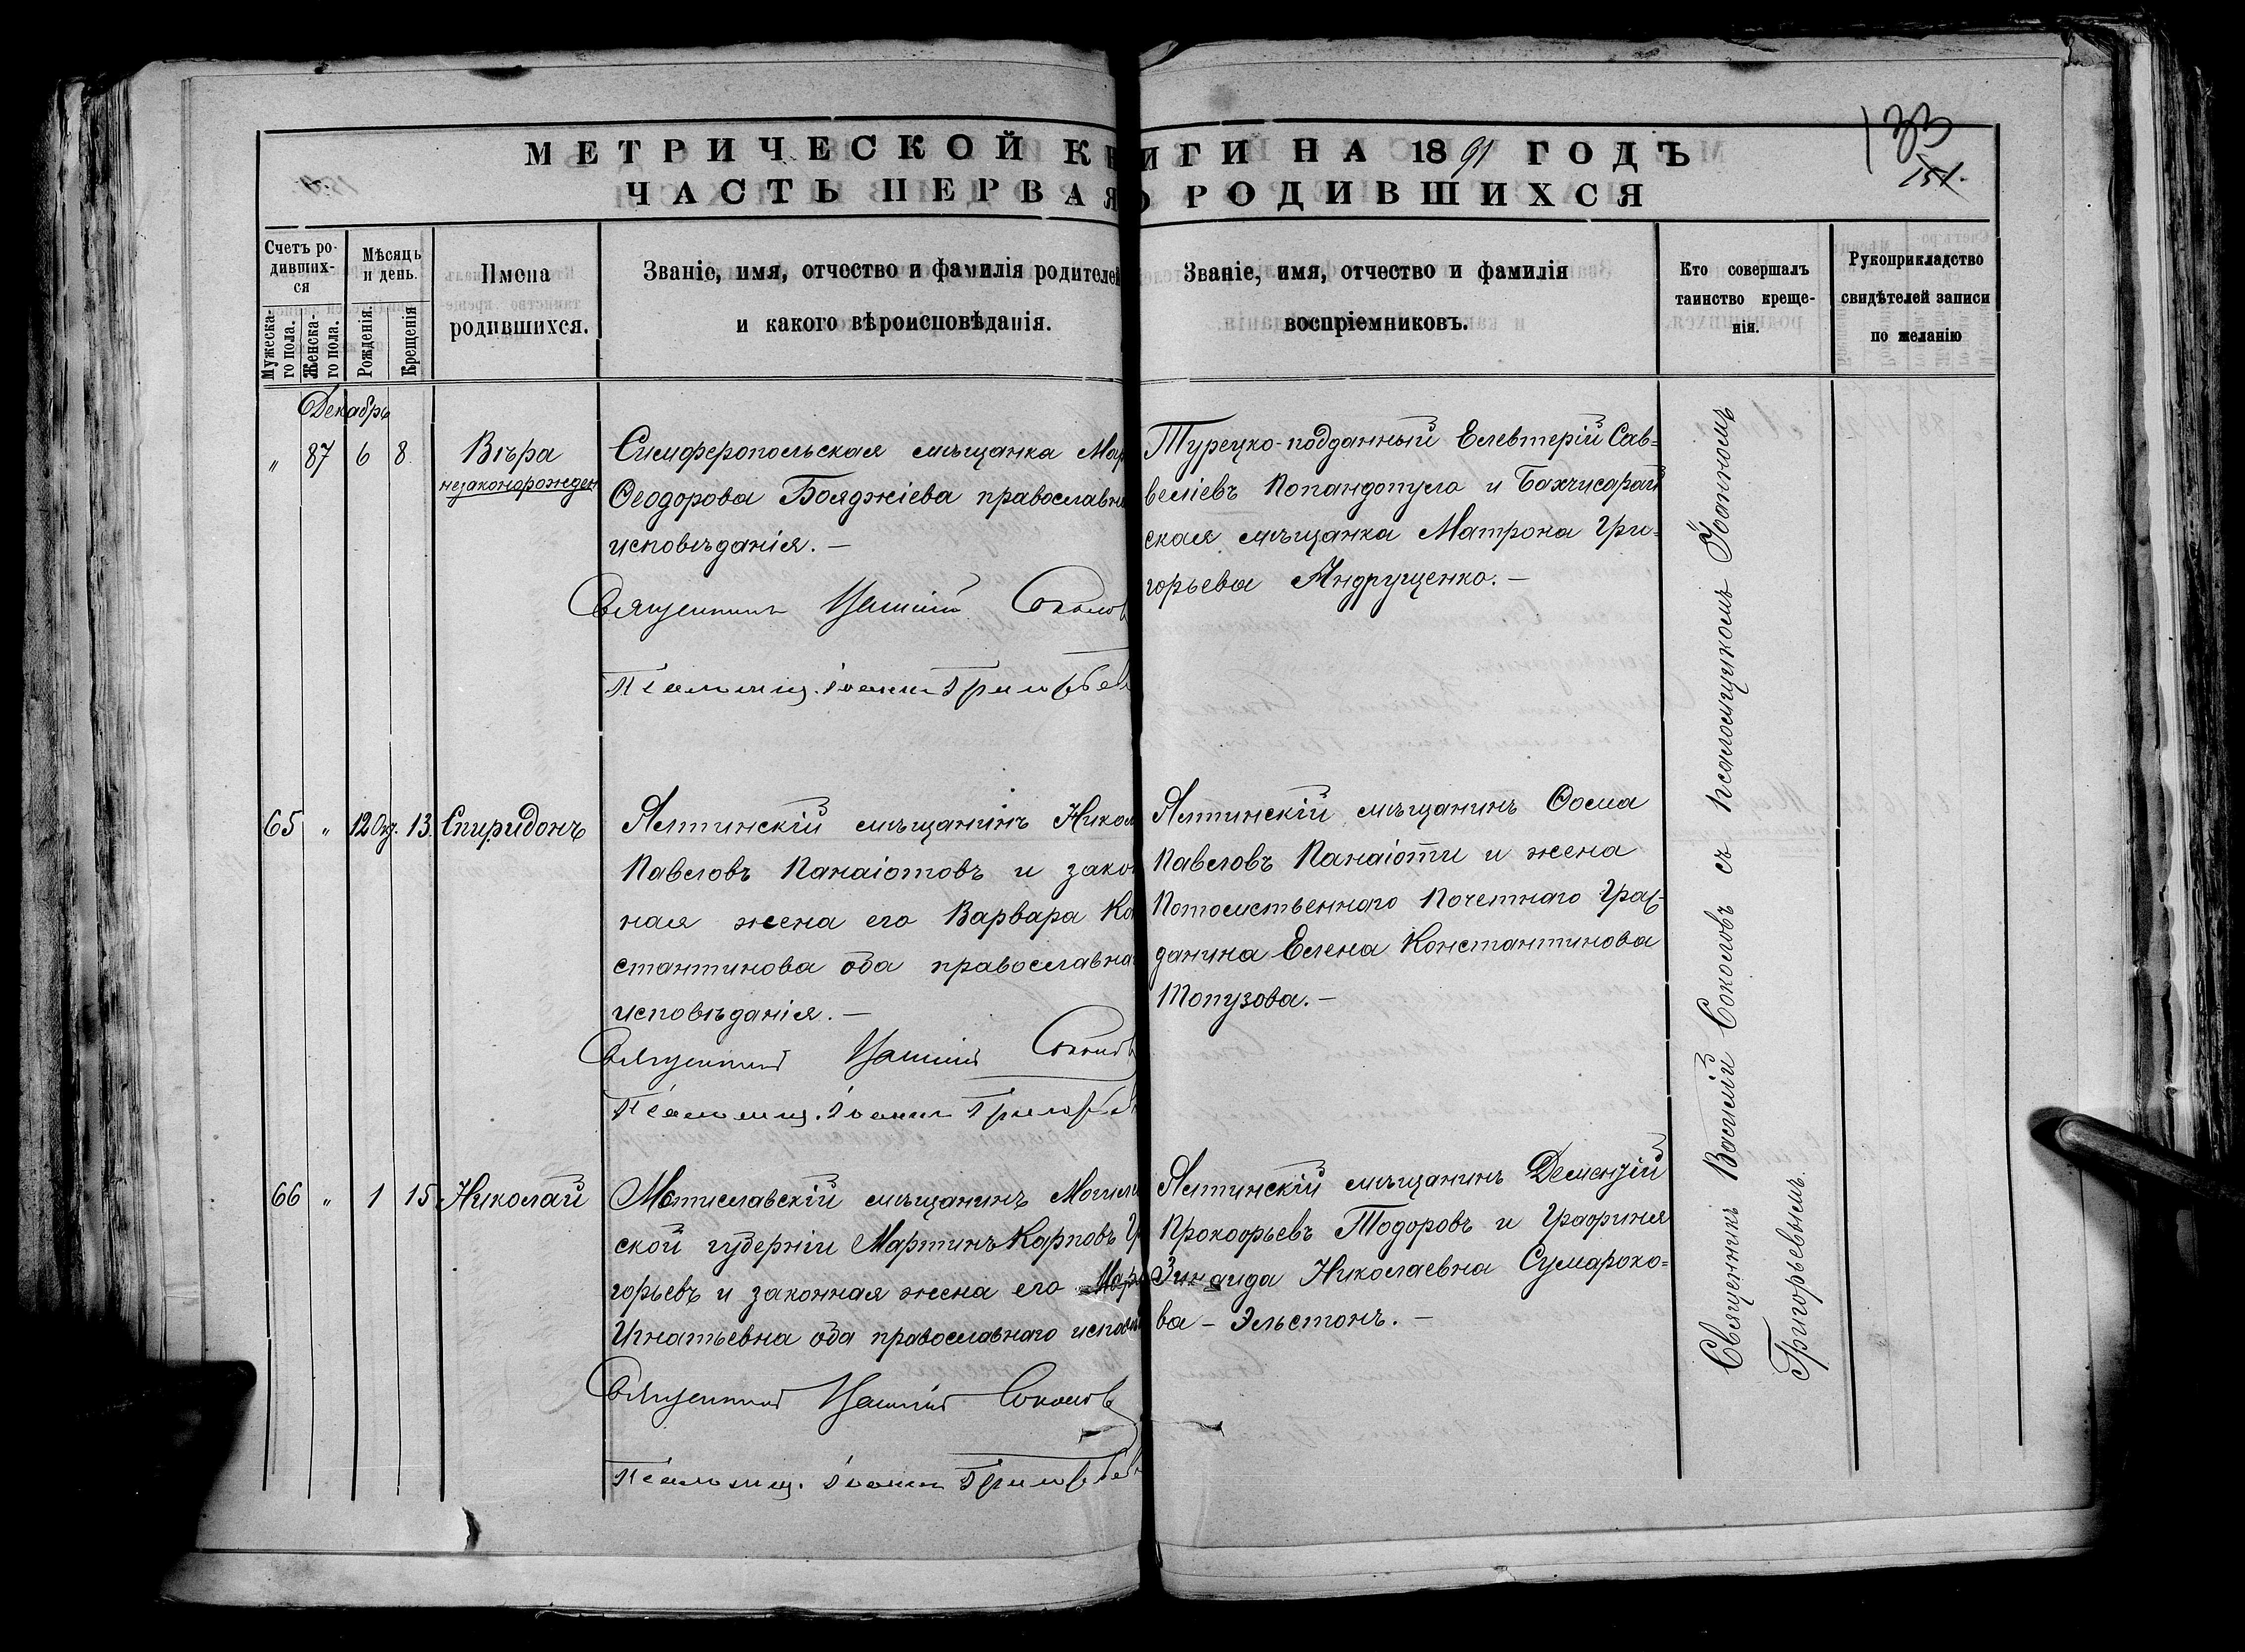 МЕТРИЧЕСКОЙ К
ИГИ НА 1891 ГОДЪ
ЧАСТЬ ПЕРВАЯ
О РОДИВШИХСЯ
151.
Счетъ ро-
дивших-
ся
Мужеска-
го пола.
Женска-
го пола.
Мѣсяцъ
и день.
Рожденія.
Крещенія
Имена
родившихся.
Званіе, имя, отчество и фамилія родителей
и какого вѣроисповѣданія.
Званіе, имя, отчество и фамилія
воспріемниковъ.
Кто совершалъ
таинство креще-
нія.
Рукоприкладство
свидѣтелей записи
по желанію
Декабрь
" 87 6 8
Вѣра
незаконорожден
Симферопольская мѣщанка Мар
Ѳеодорова Бояджіева православна
исповѣданія. —
Священникъ Василій Соколов
Псаломщ. Іоаннъ Григорьев
Турецко-подданный Елевтерій Сав-
веліевъ Попандопуло и Бахчисарай
ская мѣщанка Матрона Гри-
горьева Андрущенко. —
65 " 12 Окт. 13. Спиридонъ
Ялтинскій мѣщанинъ Никол
Павловъ Панаіотовъ и закон
ная жена его Варвара Ко
стантинова оба православна
исповѣданія. —
Священникъ Василій Соколов
Псаломщ. Іоаннъ Григорьев
Ялтинскій мѣщанинъ Ѳома
Павловъ Панаіоти и жена
Потомственнаго Почетнаго Граж-
данина Елена Константинова
Топузова. —
66 " 1 15 Николай
Мстиславскій мѣщанинъ Могиле
ской губерніи Мартинъ Карповъ Гр
горьевъ и законная жена его Мар
Игнатьевна оба православнаго исповѣ
Священникъ Василій Соколов
Псаломщ. Іоаннъ Григорьев
Ялтинскій мѣщанинъ Дементій
Прокофьевъ Тодоровъ и Графиня
Зинаида Николаевна Сумароко-
ва - Эльстонъ. —
Священникъ Василій Соколовъ съ псаломщикомъ Іоанномъ
Григорьевымъ.